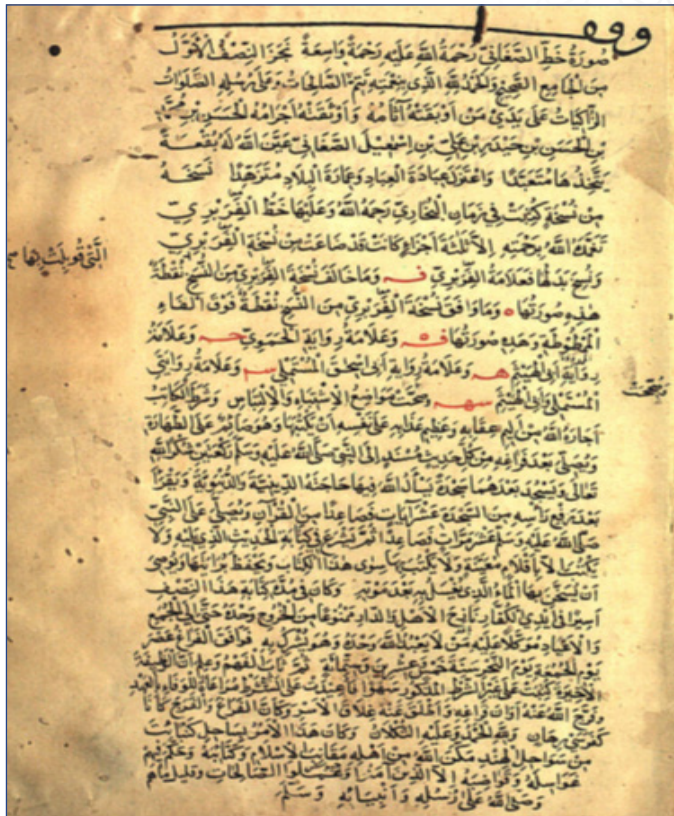 وقف
صورة خط الصغاني رحمة الله عليه رحمة واسعة نجز النصف الأول
من الجامع الصحيح والحمد لله الذي بنعمته تتم الصالحات وعلى رسله الصلوات
الزاكيات على يدي من أوبقته آثامه وأوثقته أجرامه الحسن بن محمد
بن الحسن بن حيدر بن علي بن إسمعيل الصغاني عين الله له بقعة
يتخذها متعبدا واعتزله عبادة العباد وعمارة البلاد من هذا نسخه
من نسخة كتبت في زمان البخاري رحمه الله وعليها خط الفربري
تغمده الله برحمته إلا ثلثة أجزاء كانت قد ضاعت من نسخة الفربري
التي قوبلت بها
ونسخ بدلها فعلامة الفربري ف وما خالف نسخة الفربري من النسخ نقطة
هذه صورتها ه وما وافق نسخة الفربري من النسخ نقطة فوق الفاء
المطوطة وهذه صورتها ف وعلامة رواية الحموي ح وعلامة
رواية أبي الهيثم هـ وعلامة رواية أبي إسحق المستملي س وعلامة روايتي
المستملي وأبي الهيثم سهـ وصحت مواضع الاشتباه والالتباس وشرط الكاتب
أجاره الله من أليم عقابه وعظيم عذابه على نفسه أن يكتبها وهو صائم على الطهارة
ويصلي بعد فراغه من كل حديث مسند إلى النبي صلى الله عليه وسلم ركعتين شكرا لله
تعالى ويسجد بعدهما سجدة يسأل الله فيها حاجته الدينية والدنيوية ويقرأ
بعد رفع رأسه من السجدة عشر آيات فصاعدا من القرآن ويصلي على النبي
صلى الله عليه وسلم عشر مرات فصاعدا ثم يشرع في كتابة الحديث الذي يليه ولا
يكتب إلا بأقلام معينة ولا يكتب بها سوى هذا الكتاب ويحفظ برايتها ويوصي
أن يسخن بها الماء الذي يغسل به بعد موته وكان في مدة كتابة هذا النصف
أسيرا في أيدي الكفار نازح الأهل والدار ممنوعا من الخروج وحده حتى إلى الجمع
والأعياد موكلا عليه من لا يعبد الله وحده وهو يشرك به فوافق الفراغ عشر
يوم الجمعة يوم النحر سنة خمس عشرين وستمائة
الأخيرة كتبت على غير الشرط المذكور سهوا فأعيدت على الشرط مراعاة للوفاء بالعهد
وروح الله عنه أوان فراغه وأطلق عنه غلاق الأسر وكان الفراغ والفرج كانا
كفرسي رهان ولله الحمد وعليه التكلان وكان هذا الأمر بساحل
من سواحل الهند مكن الله من أهله مقانب الإسلام وكتائبه وحكم فيهم
عواسله وقواضبه إلا الذين آمنوا وعملوا الصالحات وقليل ما هم
وصلى الله على رسله وأنبيائه وسلم